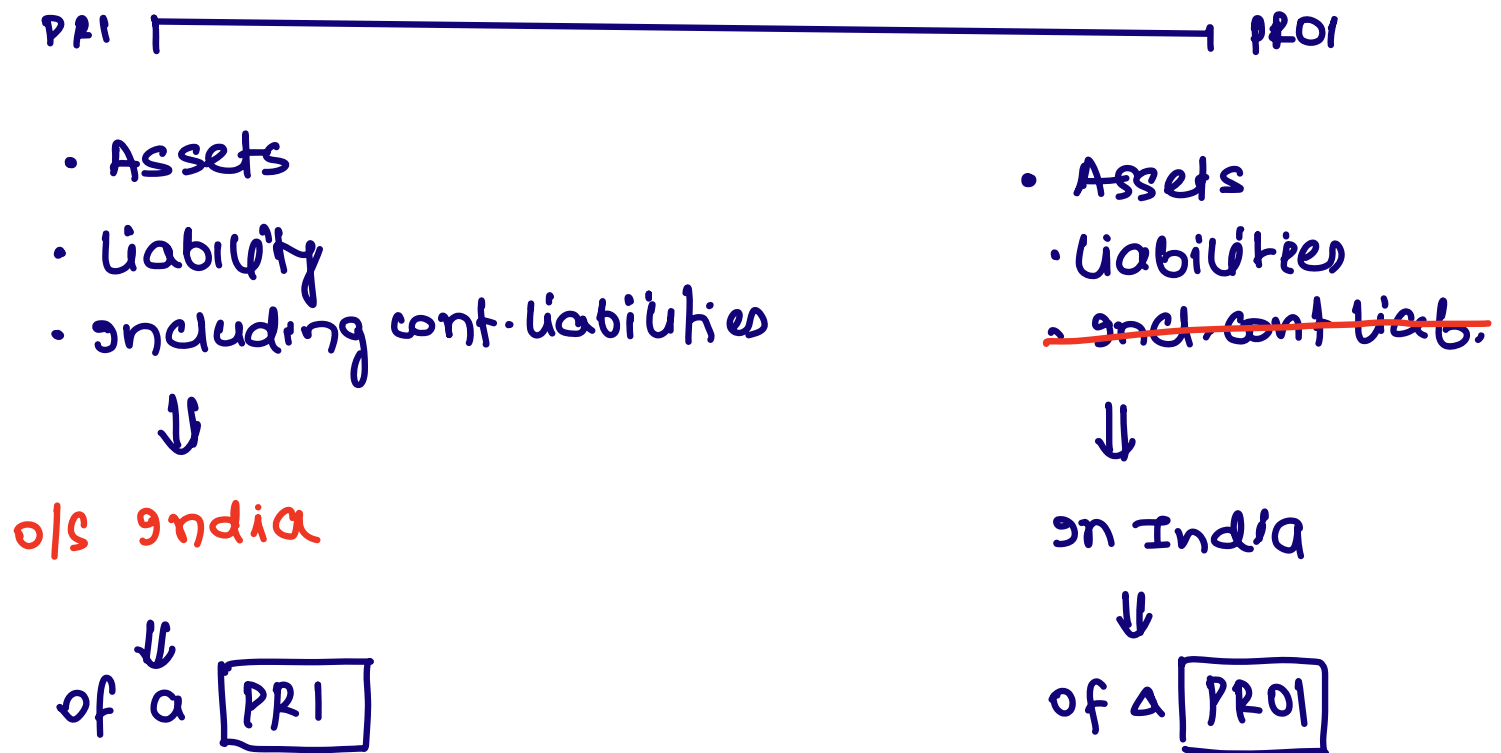 PRI
PROI
• Assets
• Liability
• Including cont. liabilities
o/s India
of a PRI
• Assets
• Liabilities
• Incl. cont liab.
In India
of a PROI